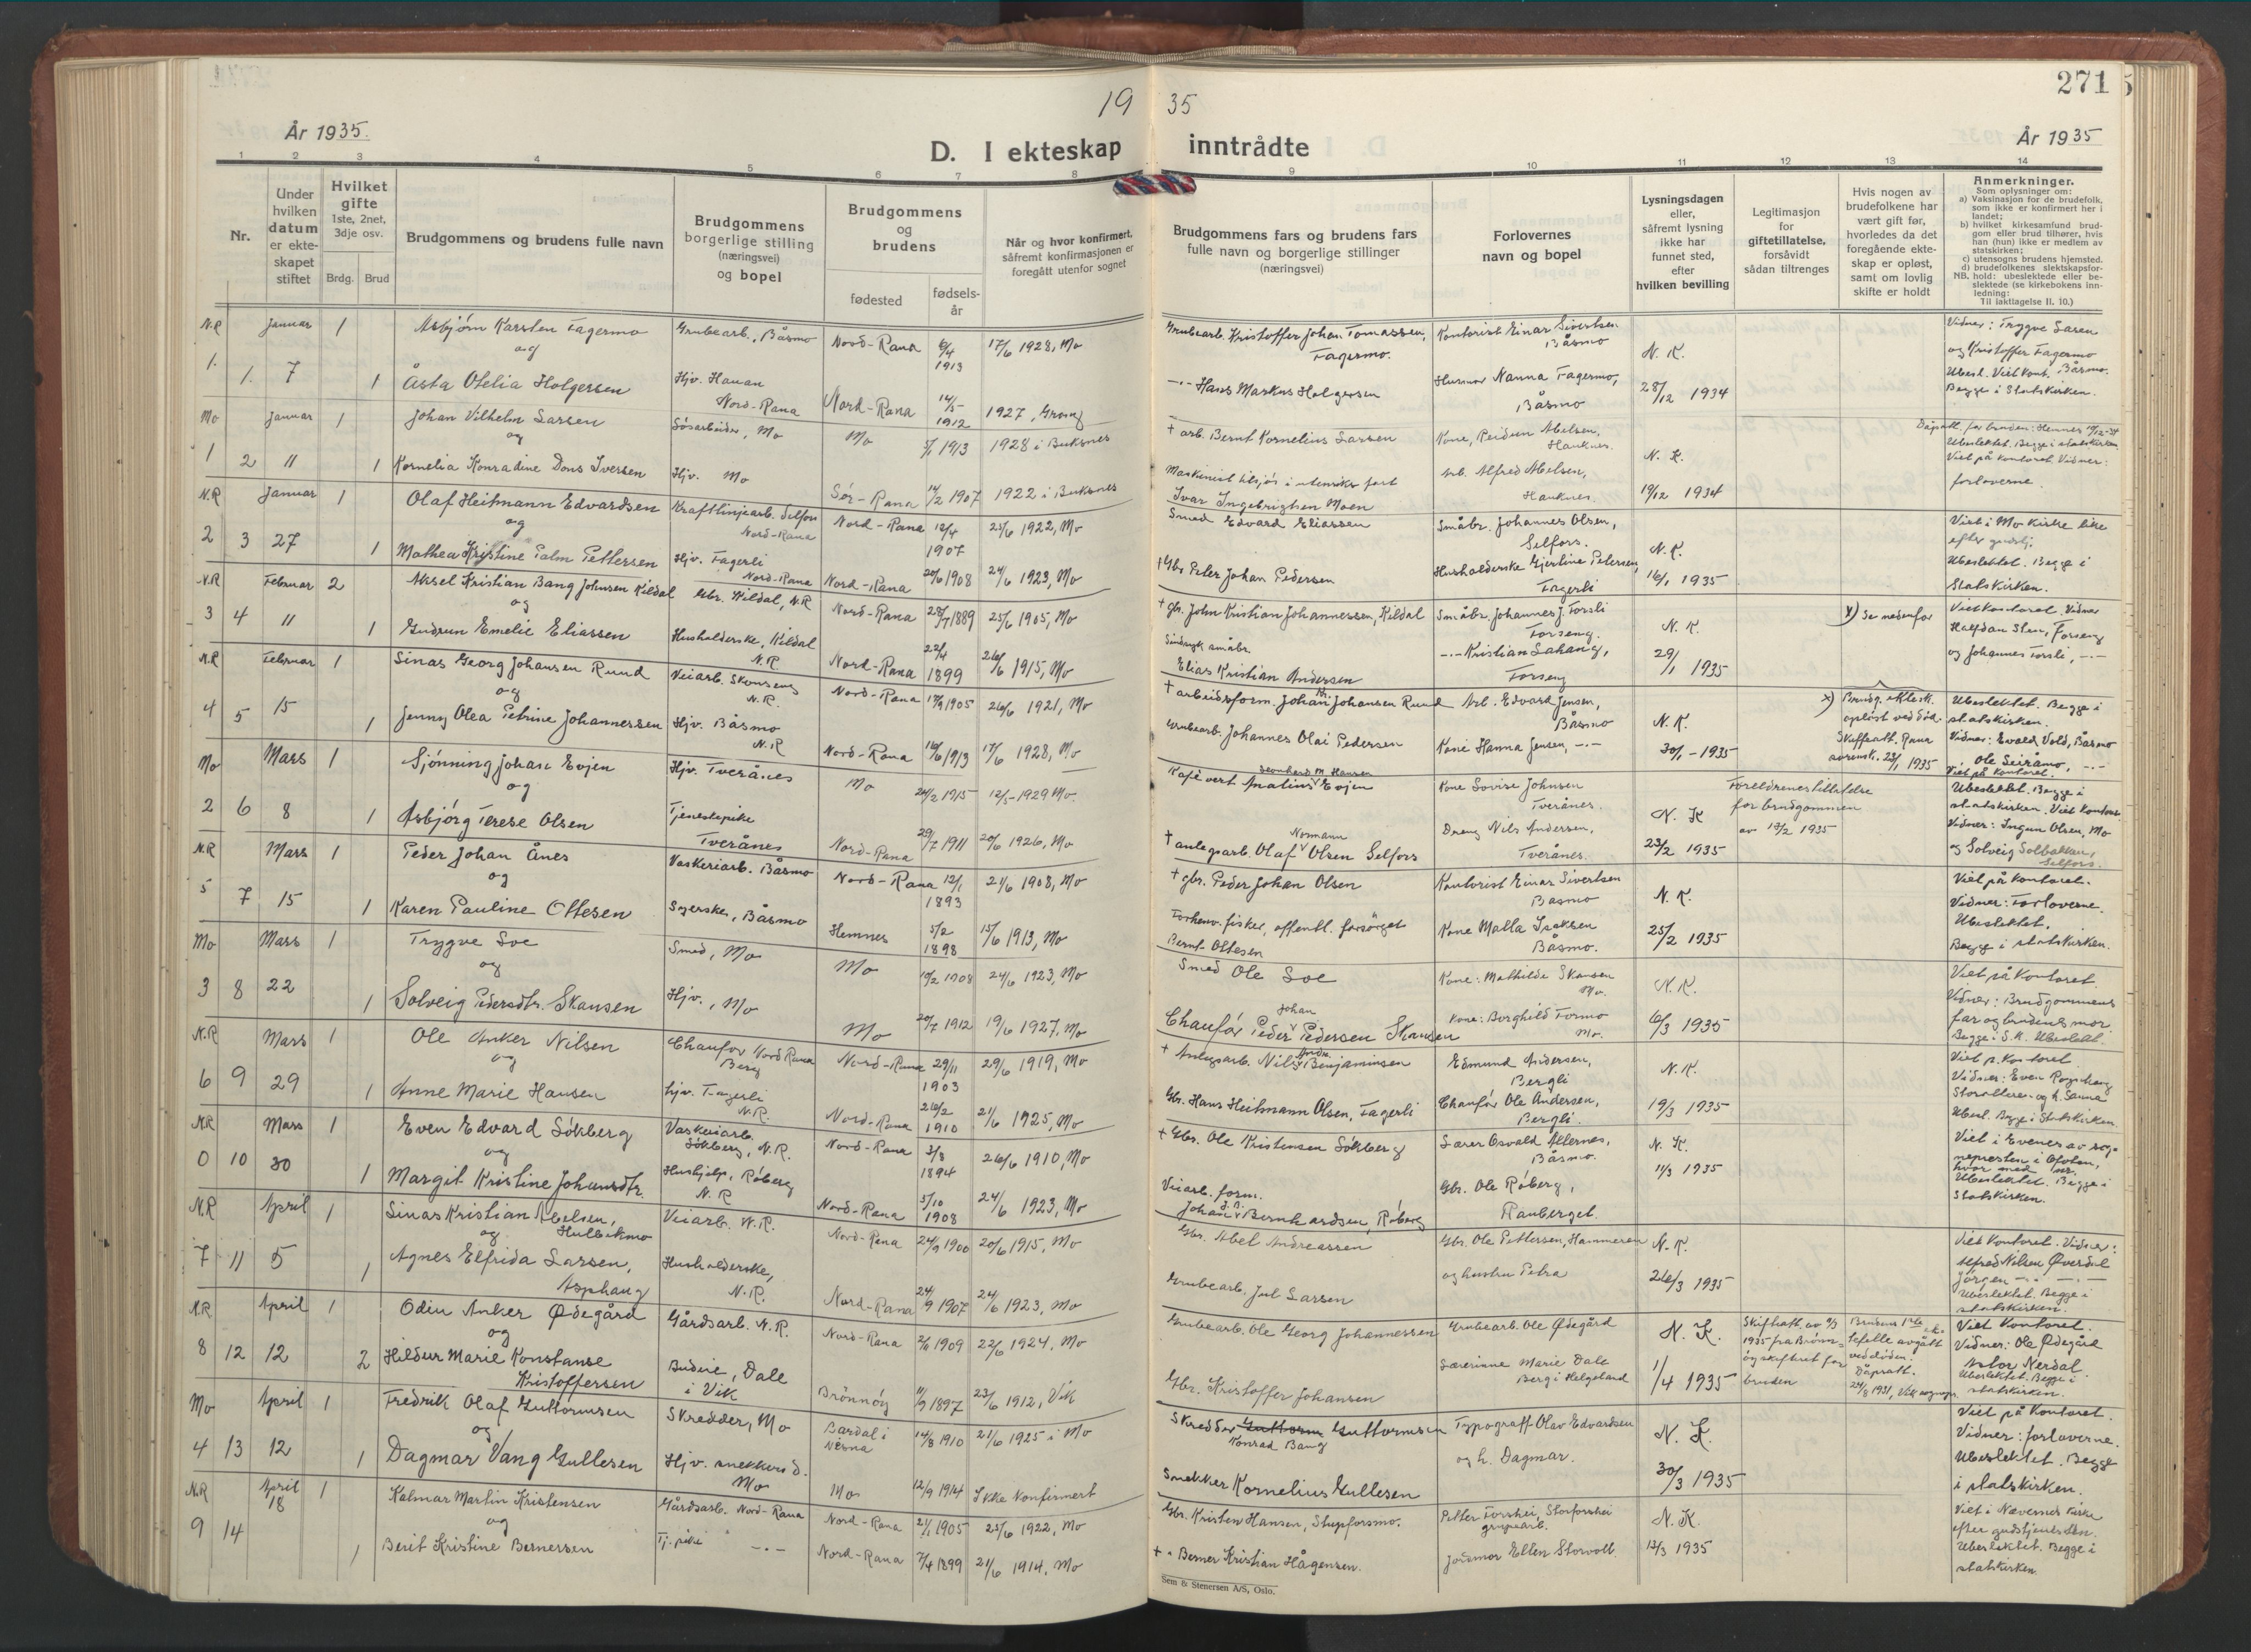 271
19 35
År 1935.
D. I ekteskap inntrådte
År 1935
1 2 3 4 5 6 7 8 9 10 11 12 13 14
Nr.
Under hvilken datum er ekte-skapet stiftet
Hvilket gifte 1ste, 2net, 3dje osv.
Brdg. Brud
Brudgommens og brudens fulle navn
Brudgommens borgerlige stilling (næringsvei) og bopel
Brudgommens og brudens
fødested
fødsels-år
Når og hvor konfirmert, såfremt konfirmasjonen er foregått utenfor sognet
Brudgommens fars og brudens fars fulle navn og borgerlige stillinger (næringsvei)
Forlovernes navn og bopel
Lysningsdagen eller, såfremt lysning ikke har funnet sted, efter hvilken bevilling
Legitimasjon for giftetillatelse, forsåvidt sådan tiltrenges
Hvis nogen av brudefolkene har vært gift før, hvorledes da det foregående ekte-skap er opløst, samt om lovlig skifte er holdt
Anmerkninger.
Som oplysninger om:
a) Vaksinasjon for de brudefolk, som ikke er konfirmert her i landet;
b) hvilket kirkesamfund brud-gom eller brud tilhører, hvis han (hun) ikke er medlem av statskirken;
c) utensogns brudens hjemsted.
d) brudefolkenes slektskapsfor-hold: ubeslektede eller be-slektede (se kirkebokens inn-ledning:
NB.
Til iakttagelse II. 10.)
N.R Januar 1 Asbjørn Karsten Fagermo Grubearb., Båsmo Nord-Rana 6/4 1913 17/6 1928, Mo Grubearb. Kristoffer Johan Tomassen, Fagermo. Kontorist Einar Sivertsen Båsmo N.K. Vidner: Trygve
og og Kristoffer Fagermo
1. 1. 7 1 Åsta Otelia Holgersen Hjv. Hauan Nord-Rana Nord-Rana 14/5 1912 1927, Grong -.- Hans Markus Holgersen Husmor Nanna Fagermo, Båsmo 28/12 1934 Ubesl. Viet Kont. Båsmo. Begge i Statskirken.
Mo Januar 1 Johan Vilhelm Larsen Mo Mo 1913 1928 i Buksnes + arb. Bernt Kornelius Larssen Kone, Reidun Abelsen, Hauknes. N.K. Dåpsatt. for bruden: Hemnes
og Ubeslektet. Begge i statskirken
1 2 11 1 Kornelia Konradine Dons Iversen Hjv. Mo Sør-Rana 14/2 1907 1922 i Buksnes Maskinist tilsjøs i utenriks fart Ivar Ingebrigtsen Moen arb. Alfred Abelsen, Hauknes 19/12 1934 Viet på kontoret. Vidner: forloverne.
N.R Januar 1 Olaf Heitmann Edvardsen Kraftlinjearb. Selfors Nord-Rana Nord-Rana 12/4 1907 25/6 1922, Mo Smed Edvard Eliassen Småbr. Johannes Olsen, Selfors. N.K. Viet i Mo Kirke like efter gudstj.
og
2 3 27 1 Mathea Kristine Palm Pettersen Hjv. Fagerli Nord-Rana Nord-Rana 20/6 1908 24/6 1923, Mo + Gbr. Peter Johan Pedersen Husholderske Gjertine Petersen, Fagerli 16/1 1935 Ubeslektet. Begge i Statskirken.
N.R Februar 2 Aksel Kristian Bang Johnsen Kildal Gbr. Kildal, N.R Nord-Rana 1889 25/6 1905, Mo + gbr. John Kristian Johannessen, Kildal Småbr. Johannes J. Forsli Forseng. N.K. x) Se nedenfor Viet Kontoret. Vidner
og Halfdan Sten, Forseng
3 4 11 1 Gudrun Emelie Eliassen Husholderske, Kildal N.R. Nord-Rana 22/4 1899 26/6 1915, Mo småbr. Elias Kristian Andersen -.- Kristian Forseng 29/1 1935 og Johannes Forsli, -.-
N.R Februar 1 Sinas Georg Johansen Ruud Veiarb. Skonseng N.R. Nord-Rana 17/9 1905 26/6 1921, Mo + arbeidsform. Johan Johansen Ruud Arb. Edvard Jensen, Båsmo N.K. x) Brudg. ektesk. opløst ved død. Ubeslektet. Begge i statskirken.
og
4 5 15 1 Jenny Olea Petrine Johannessen Hjv. Båsmo N.R Nord-Rana 16/6 1913 17/6 1928, Mo Grubearb. Johannes Olai Pedersen Kone Hanna Jensen, -.- 30/1 - 1935 Skifteatt. Rana 1935 Vidner: Evald Vold, Båsmo Ole Seiråmo, -.- Viet på Kontoret.
Mo Mars 1 Sjønning Johan Evjen Hjv. Tverånes Mo 24/2 1915 12/5-1929 Mo. Kafèvert Leonhard M. Hansen Evjen Kone Lovise Johnsen Tverånes. N.K Foreldrenes tillatelse for brudgommen av 17/2 1935 Ubeslektet. Begge i statskirken. Viet Kontoret.
og
2 6 8 1 Asbjørg Terese Olsen Tjenestepike Tverånes Nord-Rana 29/7 1911 20/6 1926, Mo + anlegsarb. Olaf Normann Olsen Selfors Dreng Nils Andersen, Tverånes. 23/2 1935 Vidner: Ingun Olsen, Mo og Solveig Solbakken, Selfors.
N.R Mars 1 Peder Johan Ånes Vaskeriarb. Båsmo Nord-Rana 12/1 1893 21/6 1908, Mo + gbr. Peder Johan Olsen Kontorist Einar Sivertsen Båsmo N.K. Viet på Kontoret. Vidner: Forloverne.
og
5 7 15 1 Karen Pauline Ottesen Syerske, Båsmo Hemnes 5/2 1898 15/6 1913, Mo Forhenv. fisker, offentl. forsørget Bernt Ottesen Kone Malla Isaksen Båsmo. 25/2 1935 Ubeslektet. Begge i statskirken.
Mo Mars 1 Trygve Soe Smed, Mo Mo 19/2 1908 24/6 1923, Mo Smed Ole Soe Kone: Mathilde Skansen Mo. N.K. Viet på Kontoret.
og Vidner: Brudgommens
3 8 22 1 Solveig Pedersdtr. Skansen Hjv., Mo Mo 20/7 1912 19/6 1927, Mo Chaufør Peder Johan Pedersen Skansen Kone: Borghild Formo Mo. 6/3 1935 far og brudens mor. Begge i S.K. Ubeslekt.
N.R Mars 1 Ole Anker Nilsen Chaufør Nord Rana Berg Nord-Rana 29/11 1903 29/6 1919, Mo + Anlegsarb. Nils Benjaminsen Edmund Andersen, Bergli N.K. Viet p. Kontoret
og Vidner: Even
6 9 29 1 Anne Marie Hansen hjv. Fagerli N.R. Nord-Rana 26/2 1910 21/6 1925, Mo Gbr. Hans Heitmann Olsen, Fagerli Chaufør Ole Andersen, Bergli. 19/3 1935 og h. Sanna Ubesl. Begge i Statskirken.
N.R Mars 1 Even Edvard Søkberg Vaskeriarb. Søkberg, N.R. Nord-Rana 3/8 1894 26/6 1910, Mo + Gbr. Ole Kristensen Søkberg Lærer Osvald Alternes, Båsmo. N.K. Viet i Evenes av sog-nepresten i Ofoten,
og
0 10 30 1 Margit Kristine Johansdtr. Hushjelp, Røberg N.R Nord-Rana 5/10 1908 24/6 1923, Mo Veiarb. form. Johan Bernhardsen, Røberg Gbr. Ole Røberg, Rauberget. 11/3 1935 Ubeslektet. Begge i Statskirken.
N.R April 1 Sinas Kristian Abelsen, Hulbekmo Veiarb. N.R. Nord-Rana 24/9 1900 20/6 1915, Mo Gbr. Abel Andreassen Gbr. Ole Pettersen, Hammeren N.K. Viet Kontoret. Vidner:
og Alfred Nilsen Øverdal
7 11 5 1 Agnes Elfrida Larsen, Asphaug Husholderske, N.R. Nord-Rana 24/9 1907 24/6 1923, Mo Grubearb. Jul Larsen og hustru Petra 26/3 1935 Jørgen -.- -.- Ubeslektet. Begge i statskirken.
N.R April 1 Odin Anker Ødegård Gårdsarb. N.R. Nord-Rana 1909 22/6 1924, Mo Grubearb. Ole Georg Johannessen Grubearb. Ole Ødegård N.K. Skifteatt. av 9/3 1935 fra Brønn-øy skifteret for bruden Brudens 1ste avgått ved døden. Dåpsatt. 24/8 1931, Vik Viet Kontoret.
og Vidner: Ole Ødegård
8 12 12 2 Hildur Marie Konstanse Kristoffersen Budeie, Dale i Vik Brönnöy 11/9 1897 23/6 1912, Vik Gbr. Kristoffer Johansen Lærerinne Marie Dale Berg i Helgeland 1/4 1935 Astor Nerdal. Ubeslektet. Begge i statskirken.
Mo April 1 Fredrik Olaf Guttormsen Skredder, Mo Bardal i Nesna 14/8 1910 21/6 1925 i Mo Skredder Guttorm Konrad Bang Guttormsen Typograff Olav Edvardsen N.K. Viet på Kontoret.
og og h. Dagmar. Vidner: forloverne.
4 13 12 1 Dagmar Vang Gullesen Hjv. snekkersd. Mo Mo 12/9 1914 Ikke Konfirmert Snekker Kornelius Gullesen 30/3 1935 Ubeslektet. Begge i statskirken.
N.R April 18 1 Kalmar Martin Kristensen Gårdsarb. Nord-Rana Nord-Rana 21/1 1905 25/6 1922, Mo Gbr. Kristen Hansen, Stupforsmo. Petter Forshei, Storforshei grubearb. N.K. Viet i Nævernes Kirke efter gudstjenesten.
og
9 14 1 Berit Kristine Bernersen Tj. pike -.- Nord-Rana 7/4 1899 21/6 1914, Mo + " Berner Kristian Hågensen. Jordmor Ellen Storvoll. 12/3 1935 Ubeslektet. Begge i statskirken.
Sem & Stenersen A/S, Oslo.